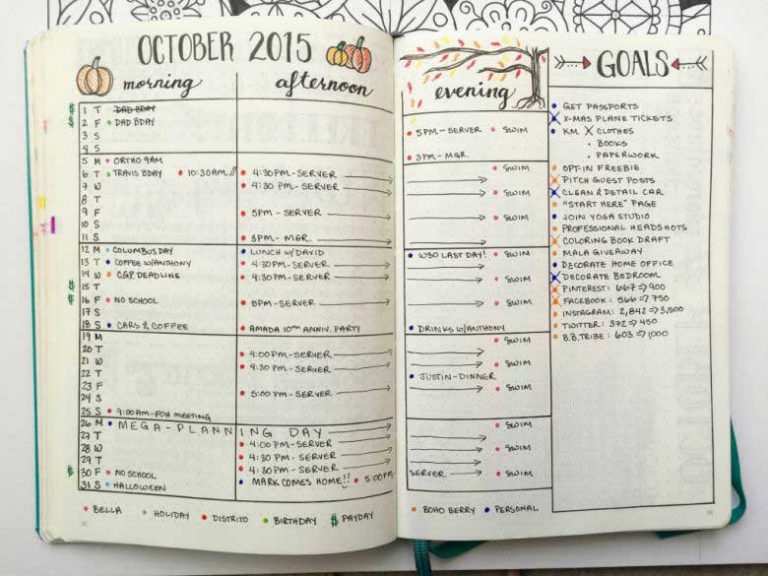 OCTOBER 2015
morning afternoon
$ 1 T DAD BDAY
$ 2 F DAD BDAY
3 S
4 S
5 M ORTHO 9AM
6 T TRAVIS BDAY 10:30AM 4:30PM-SERVER
7 W 4:30 PM-SERVER
8 T
9 F 5PM - SERVER
10 S
11 S 3PM - MGR.
12 M COLUMBUS DAY LUNCH W/DAVID
13 T COFFEE W/ANTHONY 4:30PM-SERVER
14 W CGP DEADLINE 4:30PM-SERVER
$ 15 T
$ 16 F NO SCHOOL 5PM-SERVER
17 S
18 S CARS & COFFEE AMADA 10TH ANNIV. PARTY
19 M
20 T 4:00PM-SERVER
21 W 4:30 PM-SERVER
22 T
23 F 5:00 PM-SERVER
24 S
25 S 9:00AM-FOH MEETING
26 M MEGA-PLANNING DAY
27 T 4:00 PM-SERVER
28 W 4:30 PM-SERVER
29 T 4:30 PM-SERVER
$ 30 F NO SCHOOL MARK COMES HOME!! 5:00PM
31 S HALLOWEEN
BELLA HOLIDAY DISTRITO BIRTHDAY $ PAYDAY
evening
5PM-SERVER SWIM
3PM-MGR.
SWIM
SWIM
SWIM
W30 LAST DAY! SWIM
SWIM
SWIM
DRINKS W/ANTHONY
SWIM
SWIM
JUSTIN-DINNER
SWIM
SWIM
SWIM
SWIM
SERVER SWIM
BOHO BERRY PERSONAL
GOALS
GET PASSPORTS
X-MAS PLANE TICKETS
KM X CLOTHES
BOOKS
PAPERWORK
OPT-IN FREEBIE
PITCH GUEST POSTS
CLEAN & DETAIL CAR
"START HERE" PAGE
JOIN YOGA STUDIO
PROFESSIONAL HEADSHOTS
COLORING BOOK DRAFT
MALA GIVEAWAY
DECORATE HOME OFFICE
DECORATE BEDROOM
PINTEREST: 667⇒900
FACEBOOK: 566⇒750
INSTAGRAM: 2,842⇒3,500
TWITTER: 372⇒450
B.B.TRIBE: 603⇒1000